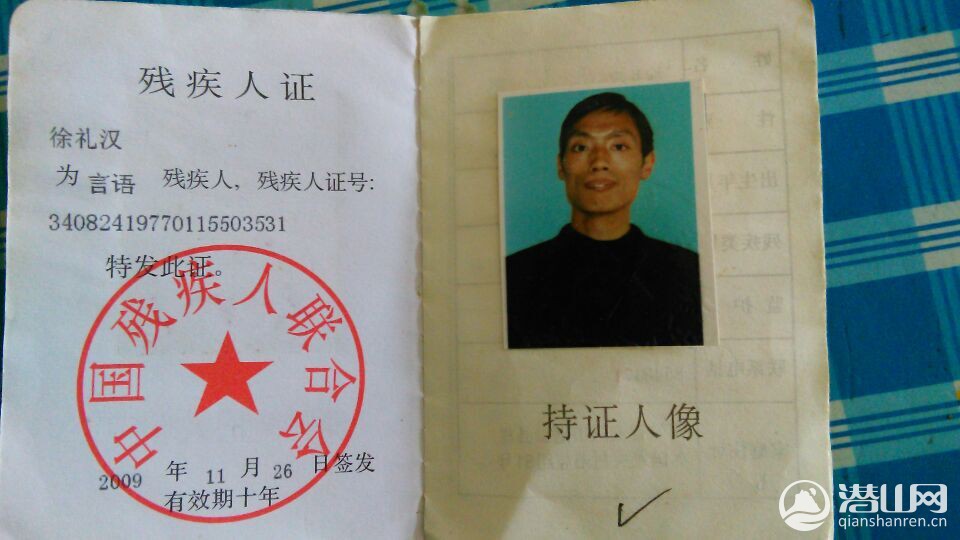 残疾人证
徐礼汉
为 言语 残疾人，残疾人证号：
34082419770115503531
特发此证。
中国残疾人联合会
2009 年 11 月 26 日签发
有效期十年
持证人像
潜山网
qianshanren.cn